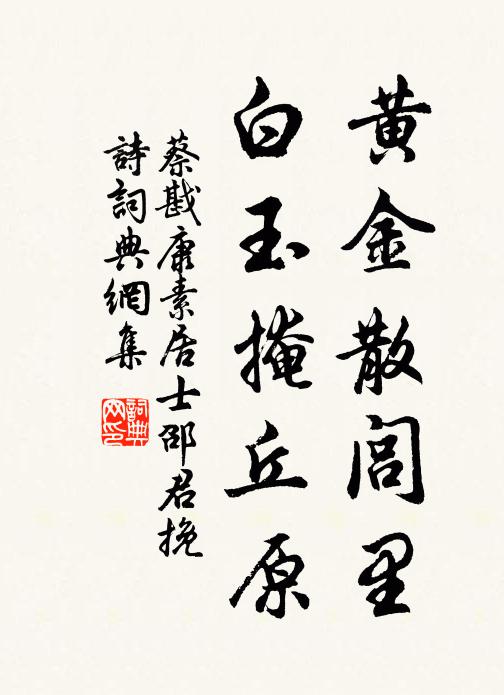 黄金散闾里
白玉掩丘原
蔡戡康素居士邵君挽
詩詞典網集
詞典网印